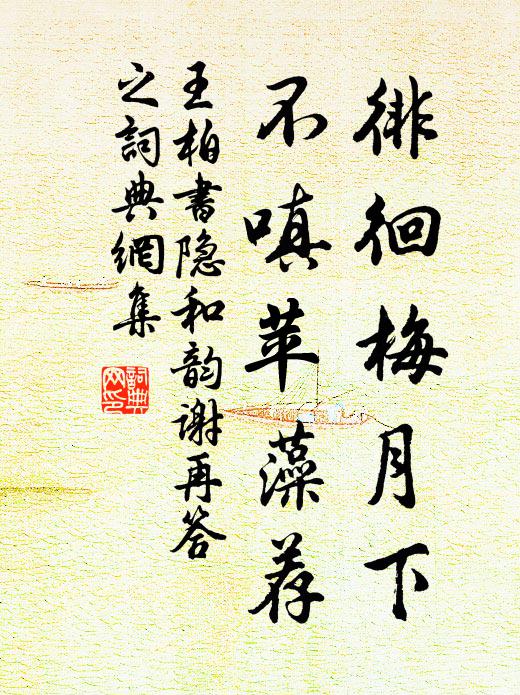 徘徊梅月下
不嗔苹藻荐
王柏書隐和韵谢再答
之詞典網集
詞典网印